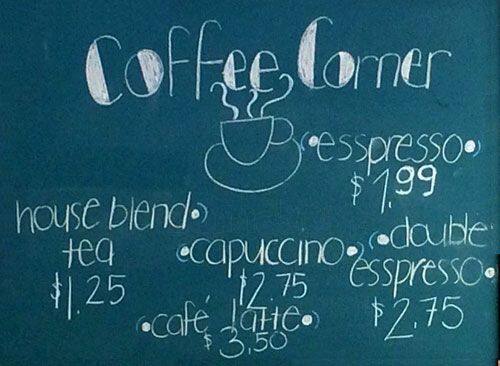 Coffee Corner
esspresso
$1.99
house blend
tea
$1.25
capuccino
$2.75
double
esspresso
$2.75
café latte
$3.50